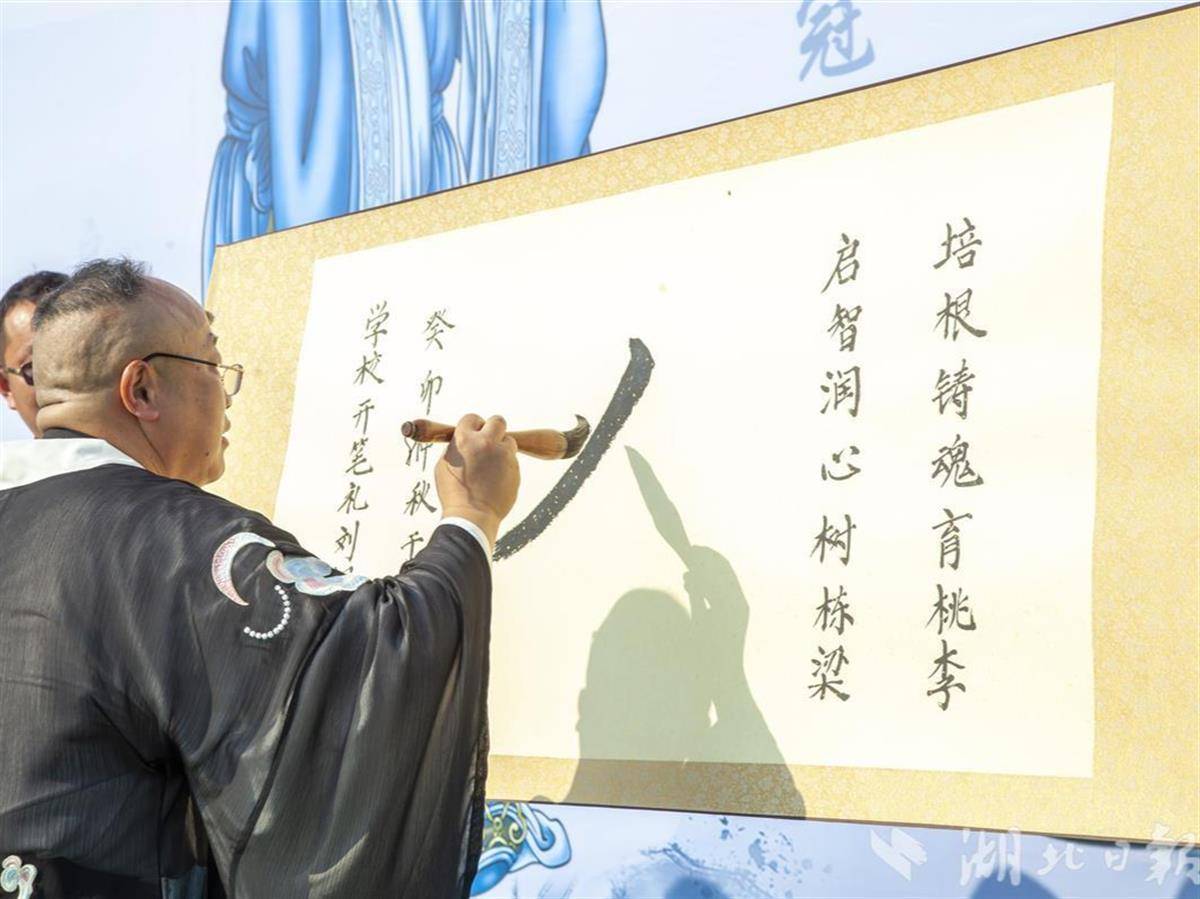 培根铸魂育桃李
启智润心树栋梁
癸卯 秋于
学校开笔礼刘
冠
湖北日報